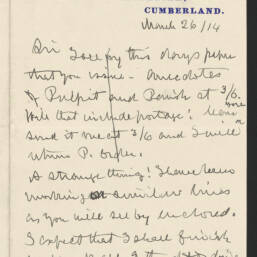 CUMBERLAND.
March 26/14
Sir I see by this days paper
that you issue - Anecdotes
of Pulpit and Parish at 3/6.
Will that include postage?
send it me at 3/6 and I will
return P. order.
A strange thing! I have been
working on similar lines
as you will see by enclosed.
I expect that I shall finish